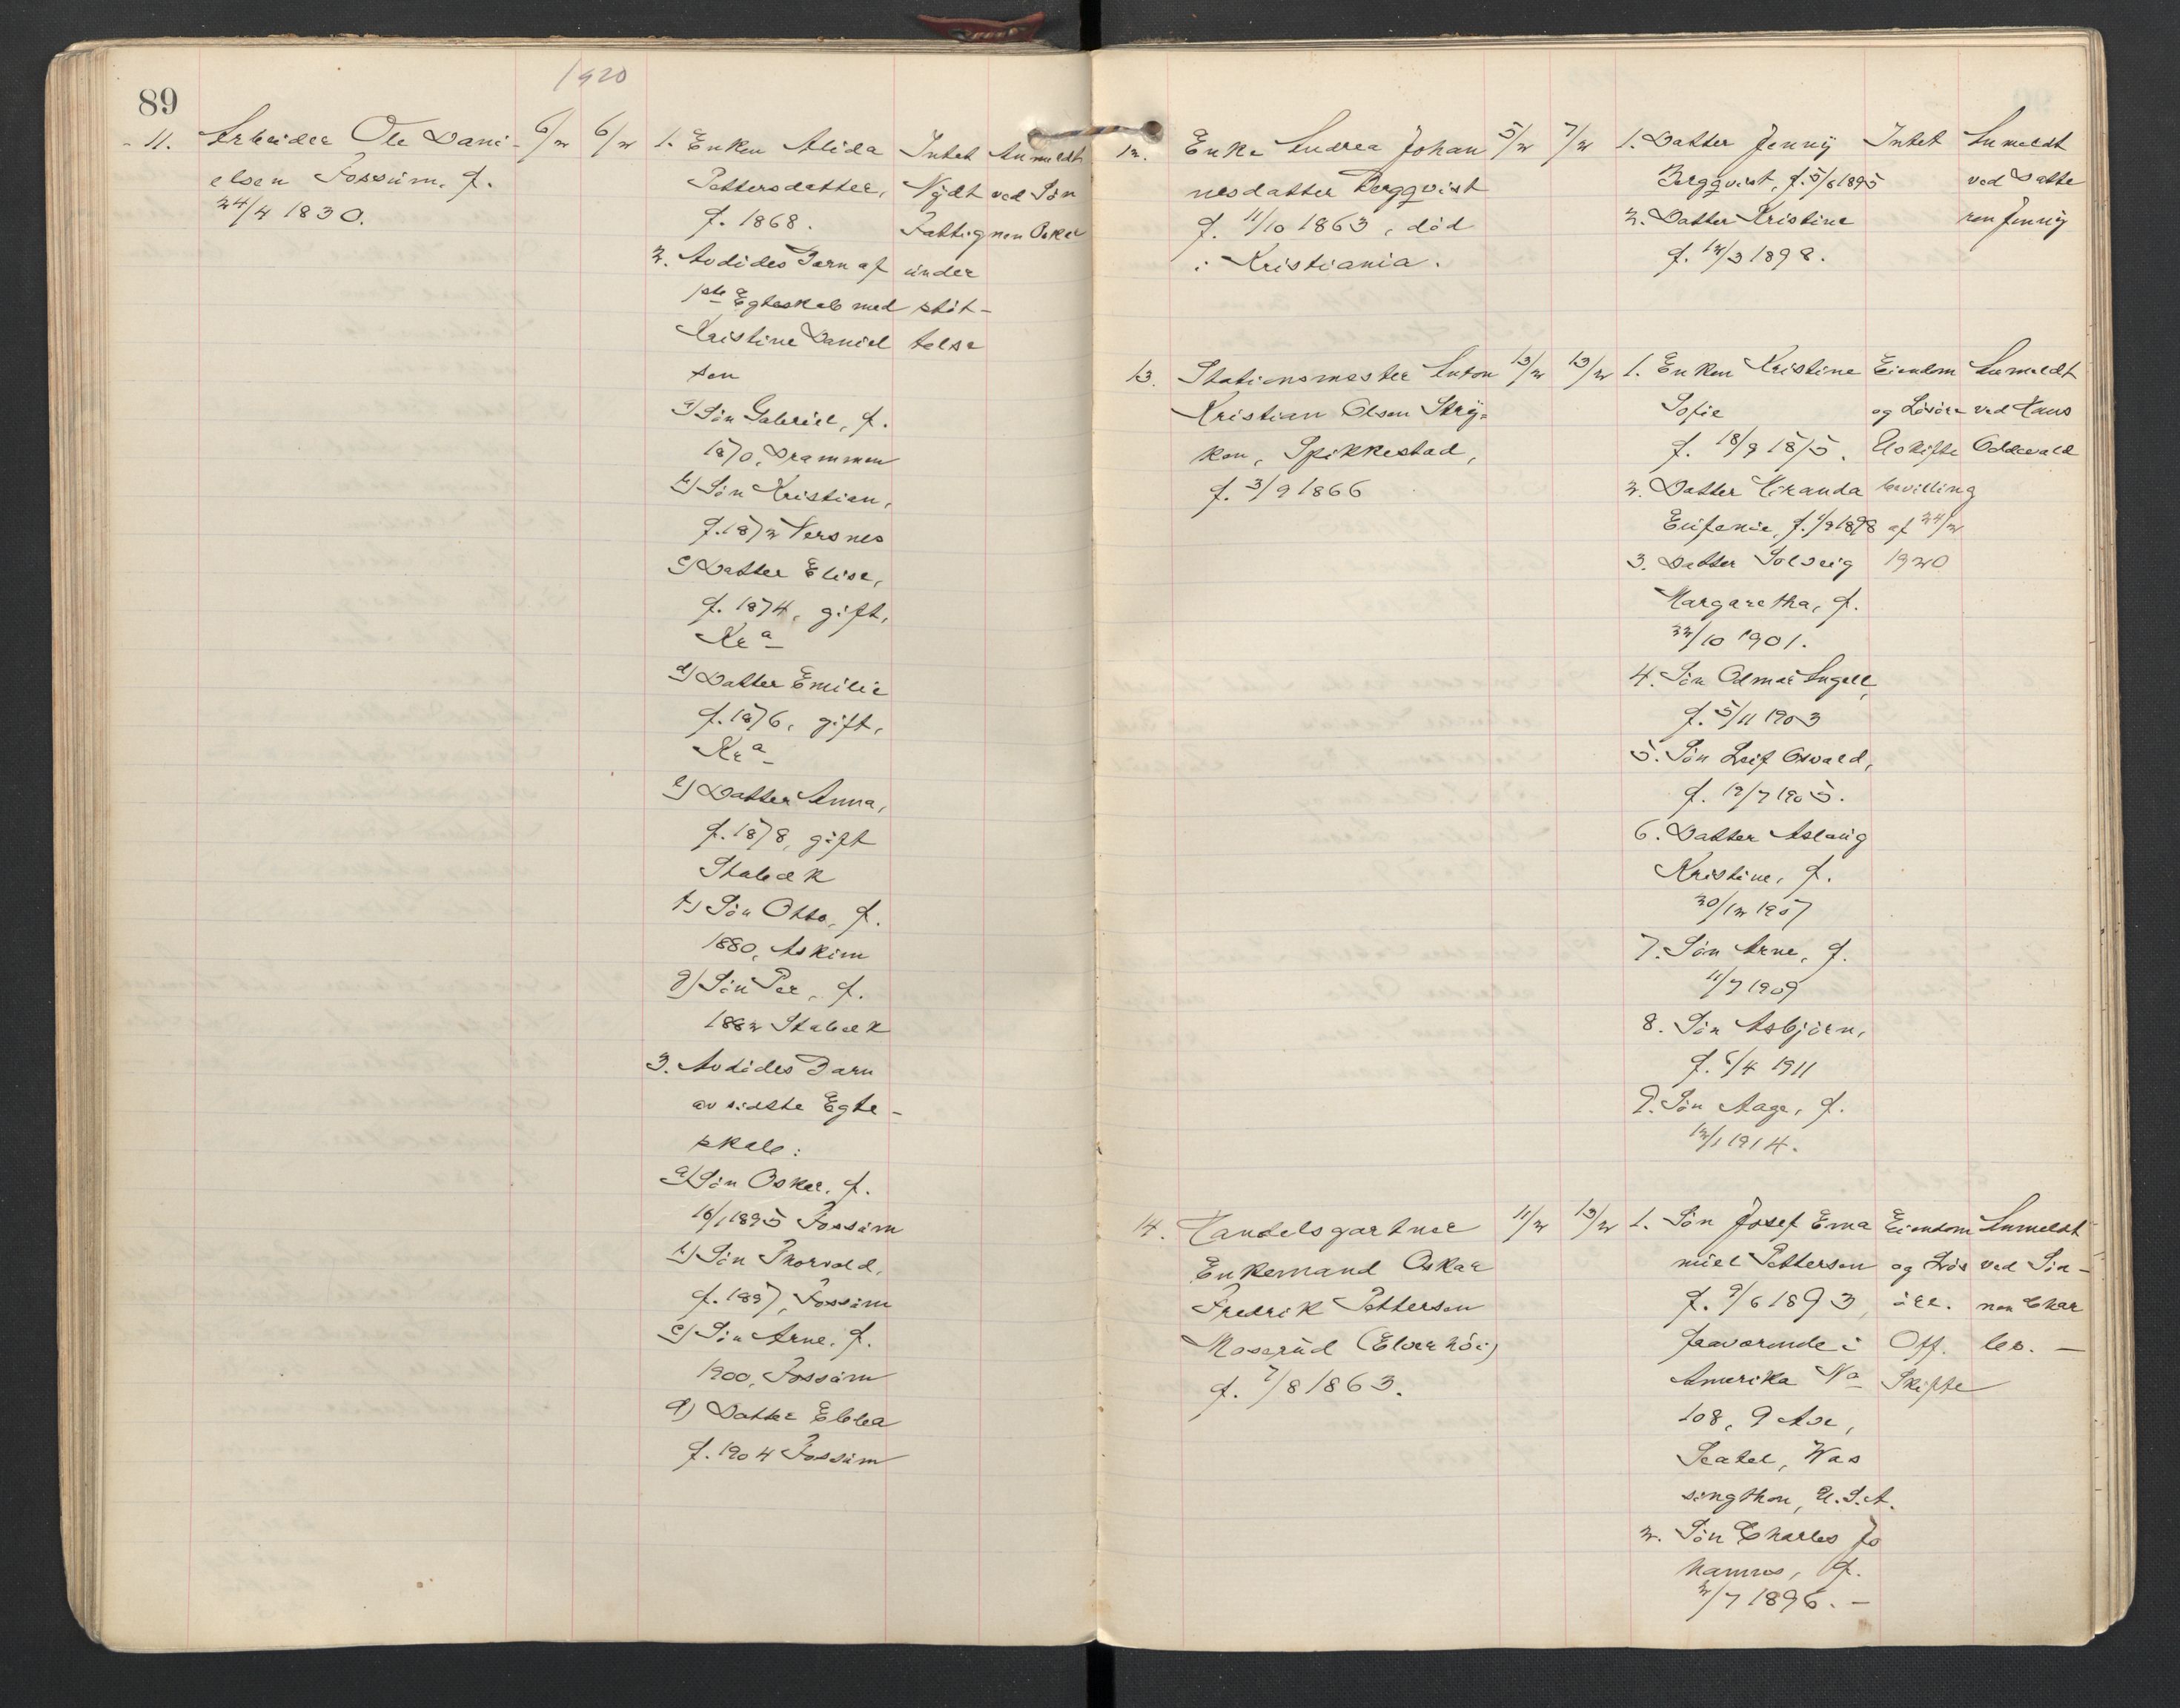 1920
89
11.
Arbeider Ole Dani-
elsen Fossum. f.
24/4 1830.
6/2
6/2
1. Enken Alida
Pettersdatter,
f. 1868.
2. Avdødes Barn af
1ste Egteskab med
Kristine Daniel
sen
a) Søn Gabriel, f.
1870, Drammen
b) Søn Kristian,
f. 1872 Versnes
c) Datter Elise,
f. 1874, gift,
Kra
d) Datter Emilie
f. 1876, gift,
Kra
e) Datter Anna,
f. 1878, gift
Stabæk
f) Søn Otto, f.
1880, Askim
g) Søn Per, f.
1882 Stabæk
3. Avdødes Barn
av sidste Egte-
skab:
a) Søn Oskar, f.
16/1 1895 Fossum
b) Søn Thorvald,
f. 1897, Fossum
c) Søn Arne, f.
1900, Fossum
d) Datter Ebba
f. 1904 Fossum
Intet
Nydt
Fattig
under
støt-
telse
Anmeldt
ved Søn
nen Oskar
12.
Enke Andrea Johan
nesdatter Bergqvist
f. 11/10 1863, død
i Kristiania.
5/2
7/2
1. Datter Jenny
Bergqvist, f. 5/8 1895
2. Datter Kristine
f. 12/3 1898.
Intet
Anmeldt
ved Datte
ren Jenny
13.
Stationsmester Anton
Kristian Olsen Stry-
ken, Spikkestad,
f. 3/9 1866
13/2
13/2
1. Enken Kristine
Sofie
f. 18/9 1875.
2. Datter Miranda
Eufemie, f. 1/9 1898
3. Datter Solveig
Margaretha, f.
22/10 1901.
4. Søn Odmar Ingell,
f. 5/11 1903
5. Søn Leif Osvald,
f. 19/7 1905.
6. Datter Aslaug
Kristine, f.
20/12 1907
7. Søn Arne, f.
11/7 1909
8. Søn Asbjørn,
f. 6/4 1911
9. Søn Aage, f.
12/1 1914.
Eiendom
og Løsøre
Uskifte
bevilling
af 24/2
1920
Anmeldt
ved Hans
Oddevald
14.
Handelsgartner
Enkemand Oskar
Fredrik Pettersen
Moserud (Elverhøi)
f. 7/8 1863.
11/2
13/2
1. Søn Josef Ema
nuel Pettersen
f. 9/6 1893,
fraværende i
Amerika No
108, 9 Ave,
Seatel, Was
singthon, U.S.A.
2. Søn Charles Jo
hannes, f.
2/7 1896. —
Eiendom
og Løs
øre.
Off.
Skifte
Anmeldt
ved Søn-
nen Char
les. —